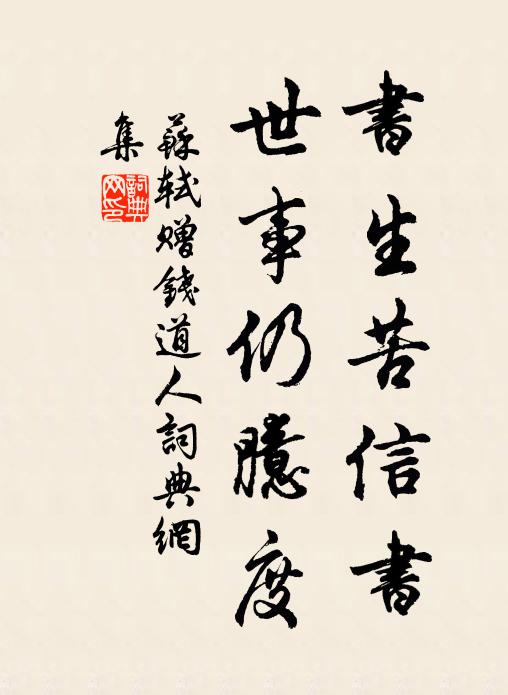 書生苦信書
世事仍臆度
蘇軾贈錢道人詞典網
集
詞典
網印